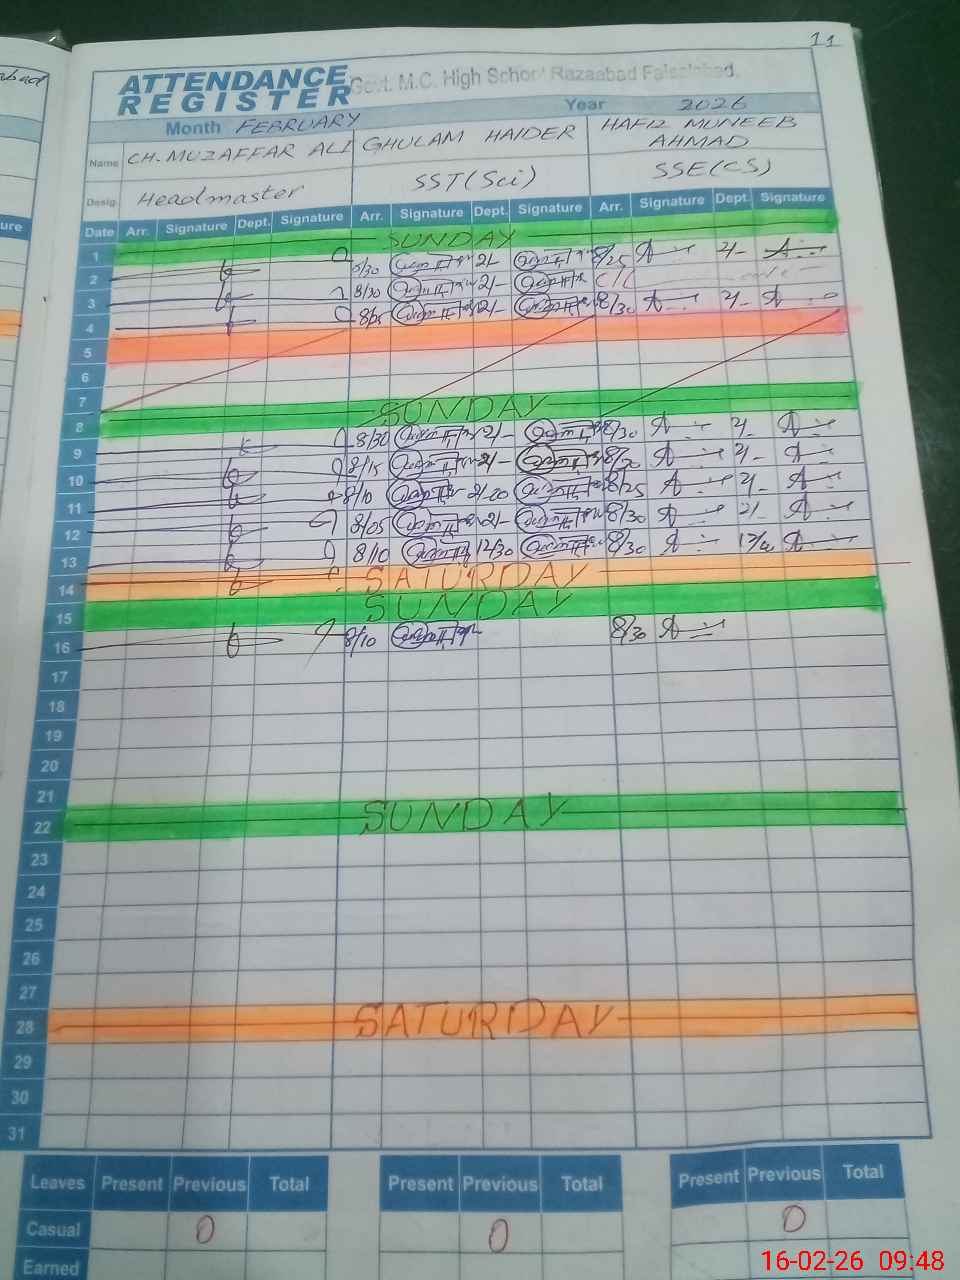 11
ATTENDANCE REGISTER
Govt. M.C. High School Razaabad Faisalabad.
Month FEBRUARY Year 2026
Name CH-MUZAFFAR ALI GHULAM HAIDER HAFIZ MUNEEB AHMAD
Desig. Headmaster SST(Sci) SSE(CS)
Date Arr. Signature Dept. Signature Arr. Signature Dept. Signature Arr. Signature Dept. Signature
1 SUNDAY
2 8/30 2/- 8/25 2/-
3 8/30 2/- C/L
4 8/25 2/- 8/30 2/-
5
6
7
8 SUNDAY
9 8/30 2/- 8/30 2/-
10 8/15 2/- 2/-
11 8/10 2/20 8/25 2/-
12 8/05 2/- 8/30 2/-
13 8/10 12/30 8/30
14 SATURDAY
15 SUNDAY
16 8/10 8/30
17
18
19
20
21
22 SUNDAY
23
24
25
26
27
28 SATURDAY
29
30
31
Leaves Present Previous Total Present Previous Total Present Previous Total
Casual 0 0 0
Earned
16-02-26 09:48